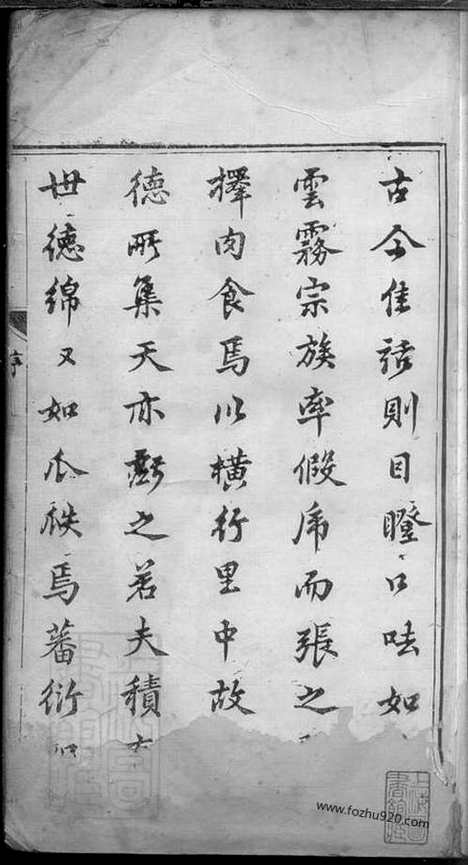 古今佳話則目瞪口呿如
雲霧宗族率假虎而張之
擇肉食焉以橫行里中故
德所集天亦虧之若夫積
世德綿又如瓜瓞焉蕃衍
序
www.fozhu920.com